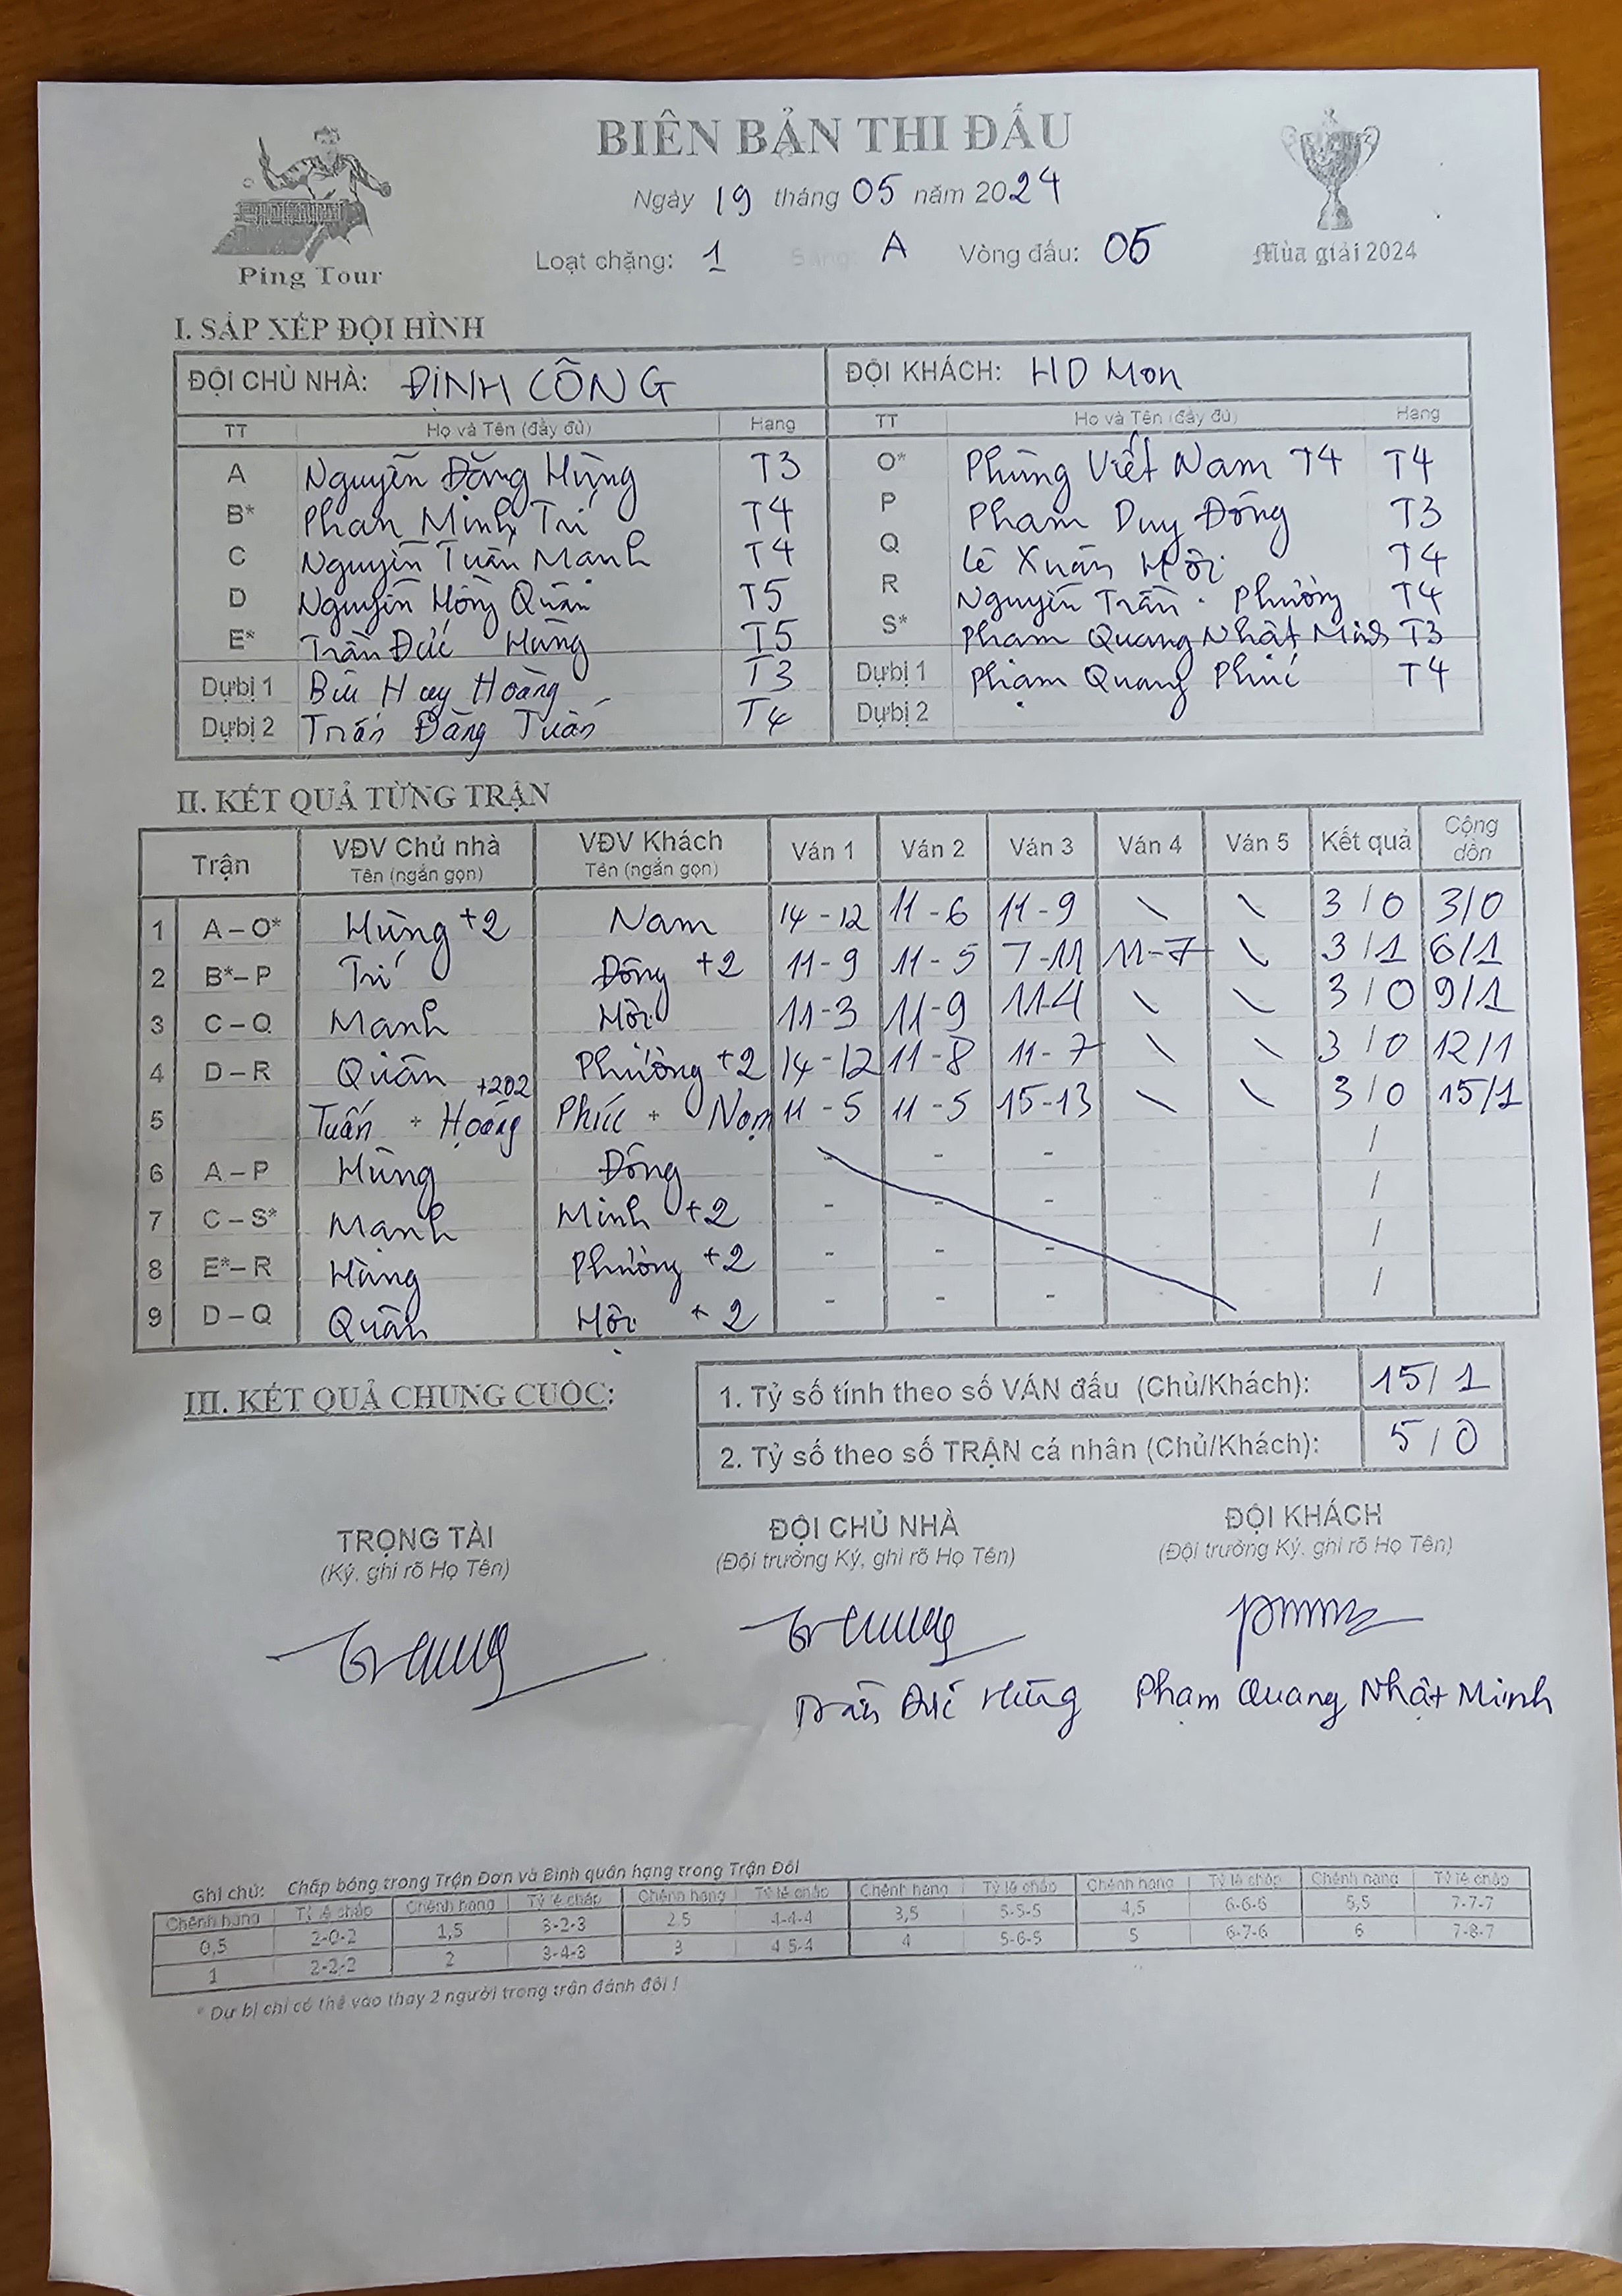 BIÊN BẢN THI ĐẤU
Ngày 19 tháng 05 năm 2024
Loạt chặng: 1 Bảng: A Vòng đấu: 05
Ping Tour
Mùa giải 2024
I. SẮP XẾP ĐỘI HÌNH
ĐỘI CHỦ NHÀ: ĐỊNH CÔNG ĐỘI KHÁCH: HD Mon
TT Họ và Tên (đầy đủ) Hạng TT Họ và Tên (đầy đủ) Hạng
A Nguyễn Đặng Hùng T3 O* Phùng Viết Nam T4 T4
B* Phan Minh Trí T4 P Phạm Duy Đông T3
C Nguyễn Tuấn Mạnh T4 Q Lê Xuân Hội T4
D Nguyễn Hồng Quân T5 R Nguyễn Trần Phường T4
E* Trần Đức Hùng T5 S* Phạm Quang Nhật Minh T3
Dự bị 1 Bùi Huy Hoàng T3 Dự bị 1 Phạm Quang Phúc T4
Dự bị 2 Trần Đăng Tuấn T4 Dự bị 2
II. KẾT QUẢ TỪNG TRẬN
Trận VĐV Chủ nhà Tên (ngắn gọn) VĐV Khách Tên (ngắn gọn) Ván 1 Ván 2 Ván 3 Ván 4 Ván 5 Kết quả Cộng dồn
1 A – O* Hùng +2 Nam 14 - 12 11 - 6 11 - 9 \ \ 3 / 0 3/0
2 B* – P Trí Đông +2 11 - 9 11 - 5 7 - 11 11 - 7 \ 3 / 1 6/1
3 C – Q Mạnh Hội 11 - 3 11 - 9 11-4 \ \ 3 / 0 9/1
4 D – R Quân Phường +2 14 - 12 11 - 8 11 - 7 \ \ 3 / 0 12/1
5 Tuấn + Hoàng +202 Phúc + Nam 11 - 5 11 - 5 15-13 \ \ 3 / 0 15/1
6 A – P Hùng Đông - - - - - /
7 C – S* Mạnh Minh +2 - - - - - /
8 E* – R Hùng Phường +2 - - - - - /
9 D – Q Quân Hội +2 - - - - - /
III. KẾT QUẢ CHUNG CUỘC:
1. Tỷ số tính theo số VÁN đấu (Chủ/Khách): 15/ 1
2. Tỷ số theo số TRẬN cá nhân (Chủ/Khách): 5 / 0
TRỌNG TÀI ĐỘI CHỦ NHÀ ĐỘI KHÁCH
(Ký, ghi rõ Họ Tên) (Đội trưởng Ký, ghi rõ Họ Tên) (Đội trưởng Ký, ghi rõ Họ Tên)
Trần Đức Hùng Phạm Quang Nhật Minh
Ghi chú: Chấp bóng trong Trận Đơn và Bình quân hạng trong Trận Đôi
Chênh hạng Tỷ lệ chấp Chênh hạng Tỷ lệ chấp Chênh hạng Tỷ lệ chấp Chênh hạng Tỷ lệ chấp Chênh hạng Tỷ lệ chấp Chênh hạng Tỷ lệ chấp
0,5 2-0-2 1,5 3-2-3 2,5 4-4-4 3,5 5-5-5 4,5 6-6-6 5,5 7-7-7
1 2-2-2 2 3-4-3 3 4-5-4 4 5-6-5 5 6-7-6 6 7-8-7
* Dự bị chỉ có thể vào thay 2 người trong trận đánh đôi !